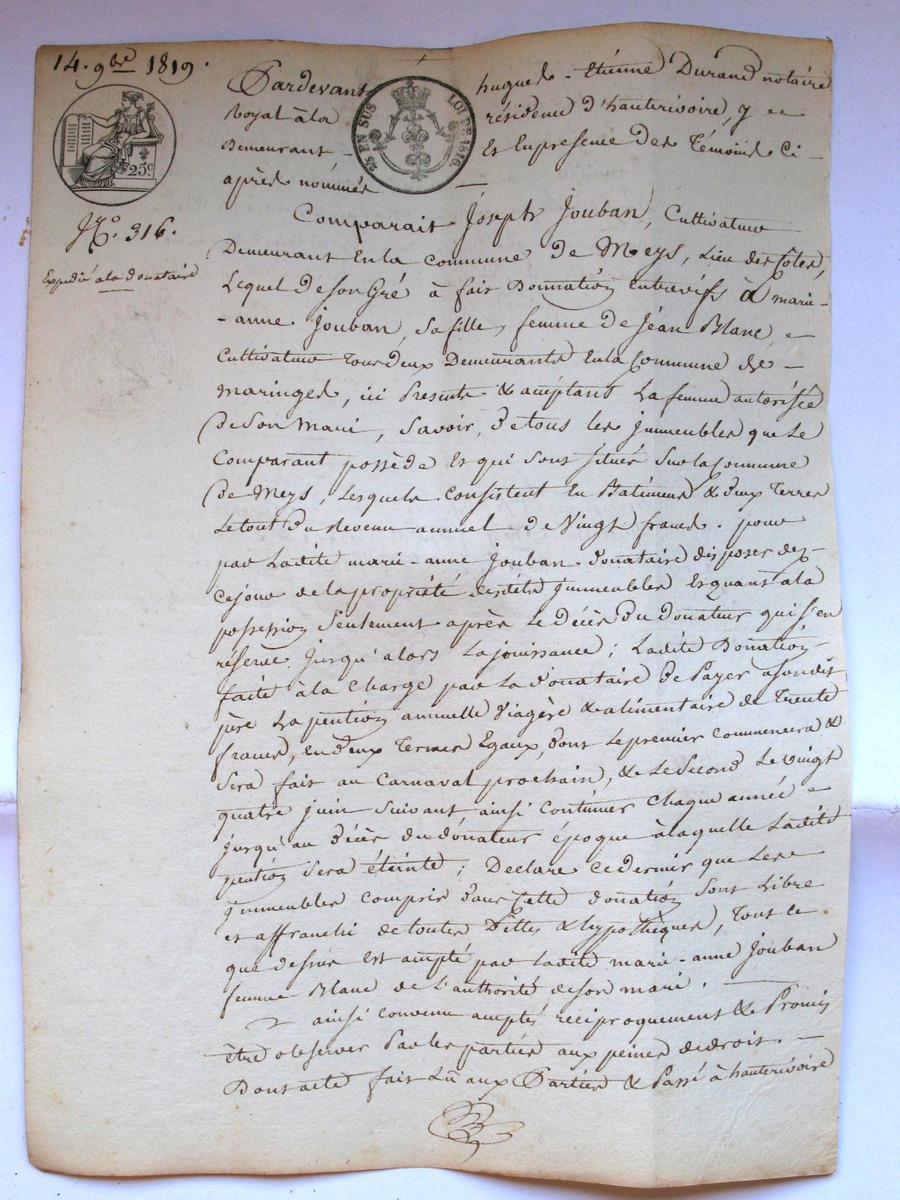 14. 9bre 1819.
25 EN SUS LOI DE 1816.
25c
No. 316.
Expedié a la donataire
Pardevant hugues - Etiénne Durand notaire
Royal à la résidence d'hauterivoire, y
Demeurant - Et En presence des Témoins Ci-
après nommés —
Comparait Joseph Jouban, Cultivateur
Demeurant En la commune de Meys, Lieu des Côtes,
Lequel de son Gré à fait Donnation Entrevifs à marie-
-anne Jouban, sa fille, femme de Jéan Blanc,
Cultivateur Tous deux Demeurants En la Commune de -
maringes, ici Presents & acceptant La femme autorisée
de Son Mari, Savoir, de tous les jmmeubles que Le
Comparant possède Et qui Sont situés Sur la Commune
de Meys, Lesquels Consistent En Batimens & deux Terres
Le tout du Revenu annuel de Vingt francs. pour
par Ladite marie-anne Jouban donataire disposer dez-
Ce jour de la propriété desdits jmmeubles Et quant a la
possession Seulement après Le décès du donateur qui S'en
réserve jusqu'alors La jouissance; Ladite Donnation
faite à la Charge par La donataire de Payer a sondit
père La pention annuelle Viagère & alimentaire de Trente
francs, en deux Termes Egaux, dont Le premier Commencera &
Sera fait au Carnaval prochain, & Le Second Le vingt
quatre juin Suivant, ainsi Continuer Chaque année
jusqu'au décès du donateur époque à laquelle Ladite
pention Sera éteinte; Declare Ce dernier que Les
jmmeubles Compris dans Cette donation Sont Libre
et affranchi de toutes Dettes & hypothèques, Tout Ce
que dessus Est accepté par Ladite marie-anne Jouban
femme Blanc de L'authorité de son mari.
ainsi Convenu acceptés réciproquement & Promis
être observer Par les parties aux peines de droit. —
Dont acte fait Lû aux Parties & Passé à hauterivoire